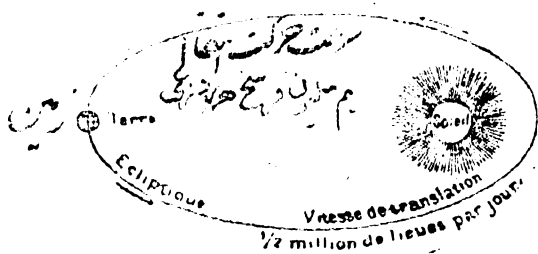 سرعت حرکت انتقالی
زمین
Terre
Soleil
Ecliptique
Vitesse de translation
1/2 million de lieues par jour.